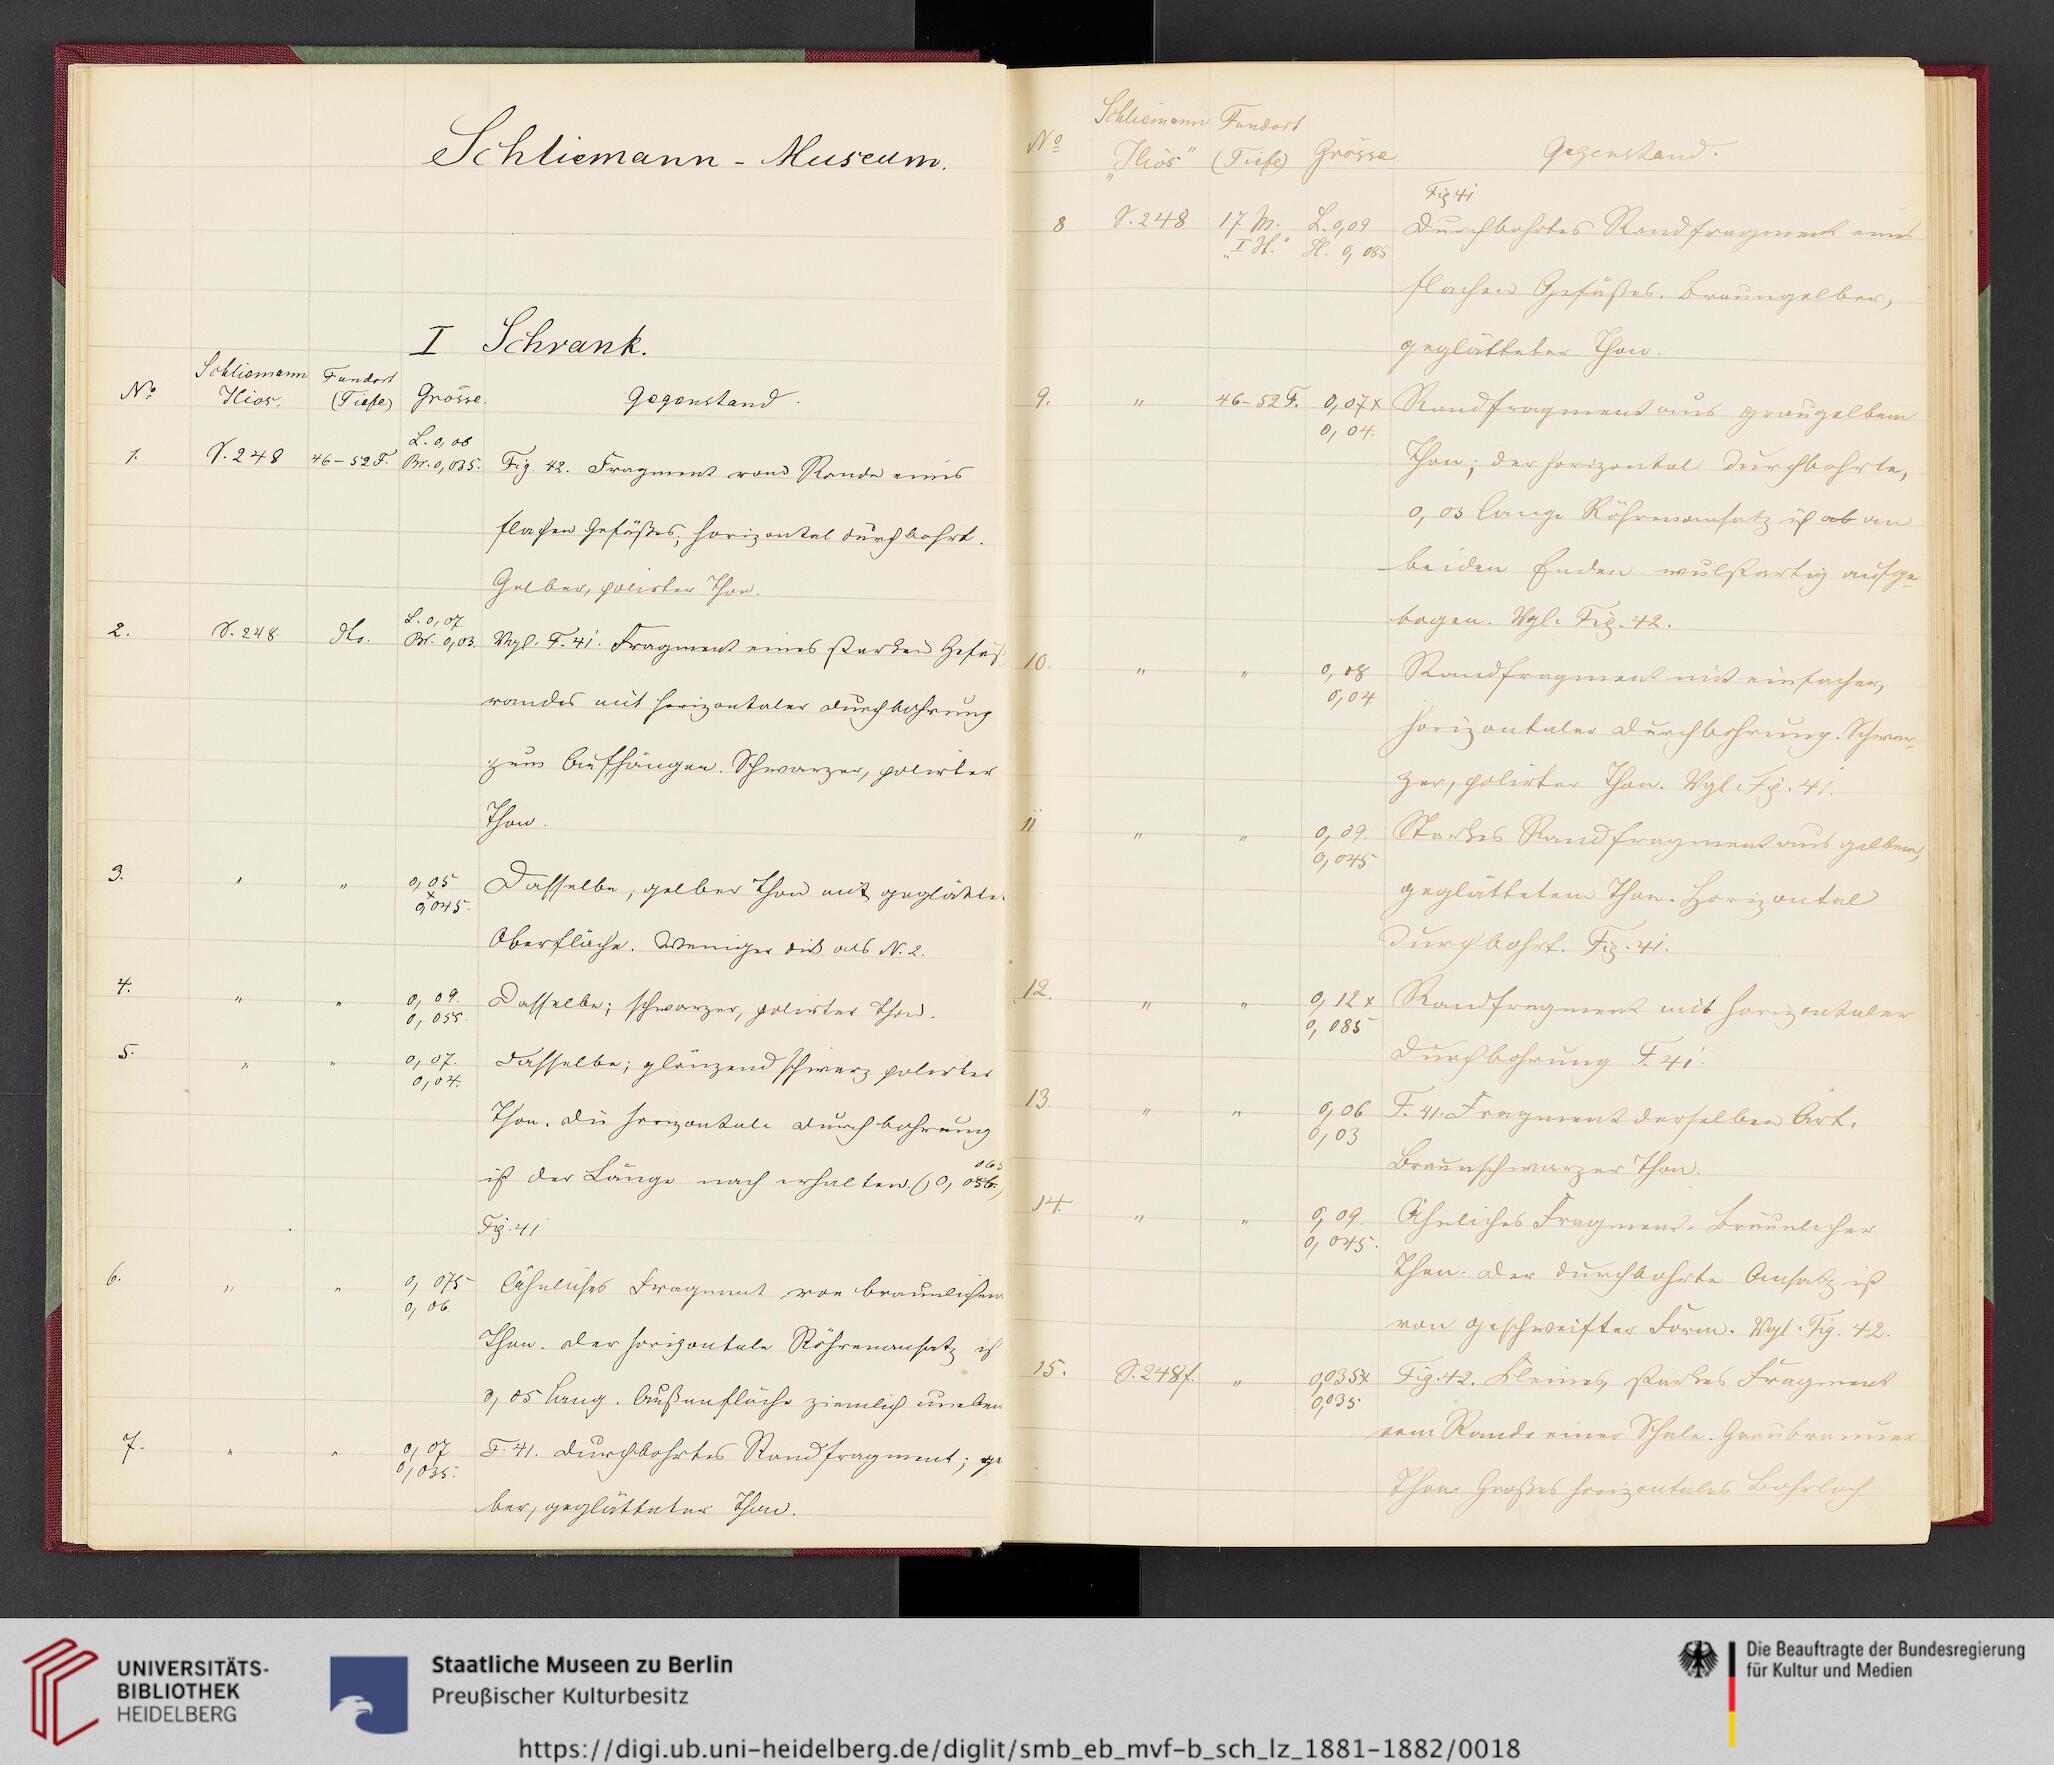 Schliemann - Museum.
I Schrank.
No. Schliemann Ilios. Fundort (Tiefe) Grösse. Gegenstand.
1. S. 248 46–52 F. L. 0,06 Br. 0,035. Fig. 42. Fragment vom Rande eines
flachen Gefäßes, horizontal durchbohrt.
Gelber, polirter Thon.
2. S. 248. do. L. 0,07. Br. 0,03. Vgl. F. 41. Fragment eines starken Gefäß
randes mit horizontaler Durchbohrung
zum Aufhängen. Schwarzer, polirter
Thon.
3. " " 0,05 x 0,045. Dasselbe, gelber Thon mit geglätte
Oberfläche. Weniger dick als N. 2.
4. " " 0,09. 0,055. Dasselbe; schwarzer, polirter Thon.
5. " " 0,07. 0,04. Dasselbe; glänzend schwarz polirter
Thon. Die horizontale Durchbohrung
ist der Länge nach erhalten. (0,
Fig. 41
6. " " 0,075 0,06. Ähnliches Fragment von bräunlichem
Thon. Der horizontale Röhrenansatz ist
0,05 lang. Außenfläche ziemlich uneben
7. " " 0,07 0,035. F. 41. Durchbohrtes Randfragment; ge
ber, geglätteter Thon.
No Schliemann „Ilios" Fundort (Tiefe) Grösse. Gegenstand.
Fig 41
8 S. 248 17 M. „I St." L. 0,09 H. 0,085 Durchbohrtes Randfragment eines
flachen Gefäßes. Braungelber,
geglätteter Thon.
9. " 46–52 F. 0,07 x 0,04. Randfragment aus graugelbem
Thon; der horizontal durchbohrte,
0,03 lange Röhrenansatz ist ab an
beiden Enden wulstartig aufge-
bogen. Vgl. Fig. 42.
10. " " 0,08 0,04 Randfragment mit einfacher,
horizontaler Durchbohrung. Schwar-
zer, polirter Thon. Vgl. Fig. 41.
11 " " 0,09. 0,045 Starkes Randfragment aus gelbem,
geglättetem Thon. Horizontal
durchbohrt. Fig. 41.
12. " " 0,12 x 0,085 Randfragment mit horizontaler
Durchbohrung F. 41.
13. " " 0,06 0,03 F. 41. Fragment derselben Art.
Braunschwarzer Thon.
14. " " 0,09. 0,045. Ähnliches Fragment. Bräunlicher
Thon. Der durchbohrte Ansatz ist
von geschweifter Form. Vgl. Fig. 42.
15. S. 248f. " 0,035 x 0,035 Fig. 42. Kleines, starkes Fragment
vom Rande einer Schale. Graubrauner
Thon. Großes horizontales Bohrloch
UNIVERSITÄTS-
BIBLIOTHEK
HEIDELBERG
Staatliche Museen zu Berlin
Preußischer Kulturbesitz
Die Beauftragte der Bundesregierung
für Kultur und Medien
https://digi.ub.uni-heidelberg.de/diglit/smb_eb_mvf-b_sch_lz_1881-1882/0018